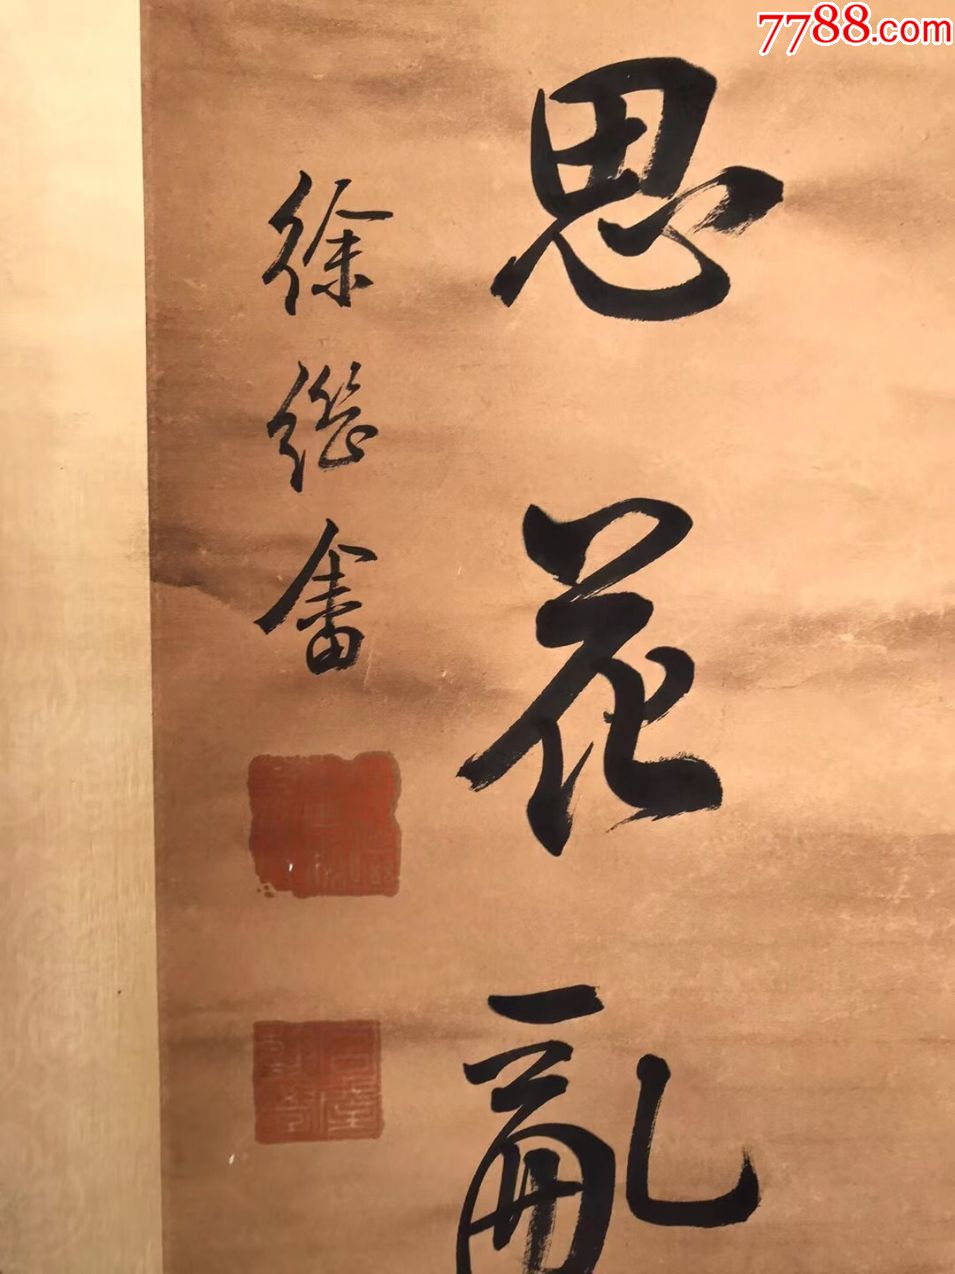 7788.com
思花亂
徐継畬